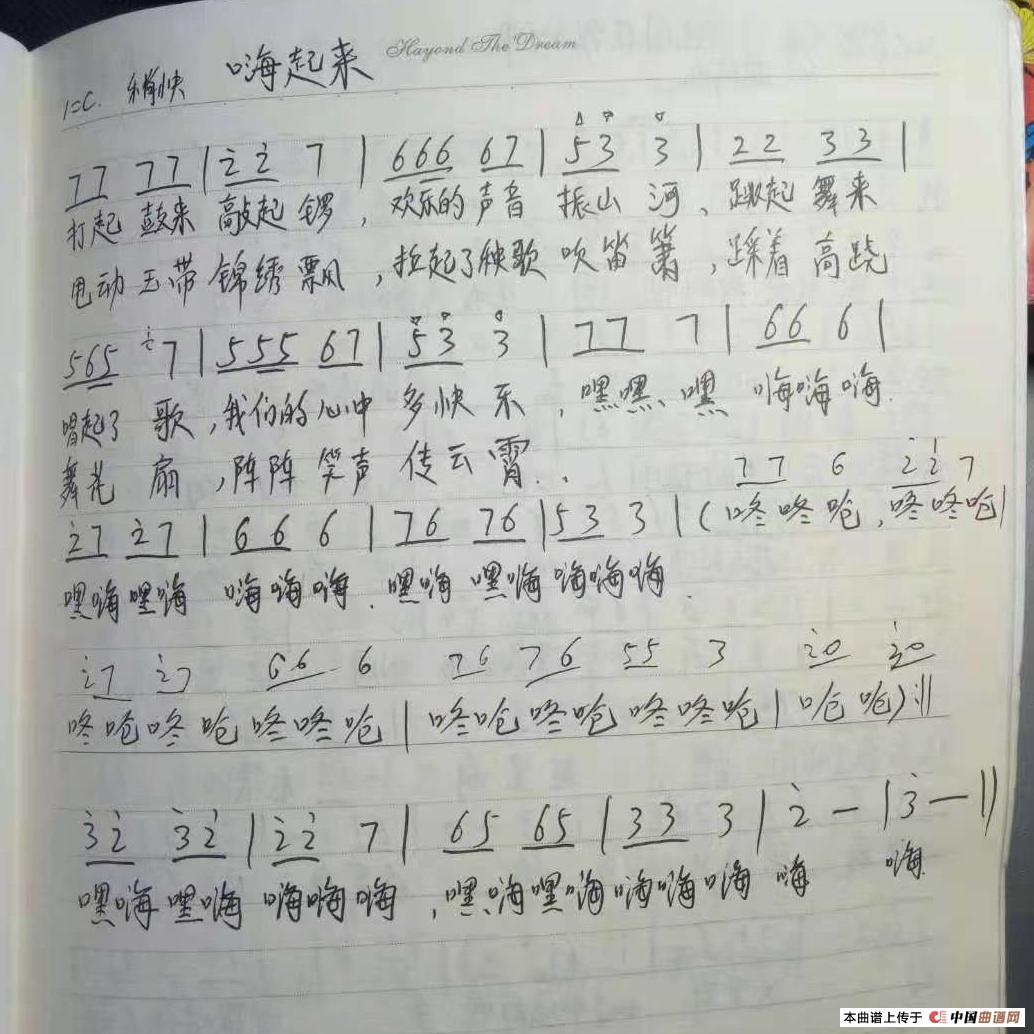 Hayond The Dream
1=C. 稍快 嗨起来
77 77 | 2̇2̇ 7 | 666 67 | 53 3 | 22 33 |
打起 鼓来 敲起 锣，欢乐的 声音 振山 河、跳起 舞来
甩动 玉带 锦绣 飘，拉起了秧歌 吹笛箫，踩着 高跷
565 2̇7 | 555 67 | 53 3 | 77 7 | 66 6 |
唱起了 歌，我们的 心中 多快 乐，嘿嘿、嘿 嗨嗨嗨.
舞花 扇，阵阵 笑声 传云霄..
77 6 2̇2̇ 7
2̇7 2̇7 | 66 6 | 76 76 | 53 3 | (咚咚呛,咚咚呛|
嘿嗨嘿嗨 嗨嗨嗨.嘿嗨 嘿嗨 嗨嗨嗨.
2̇7 2̇7 66 6 76 76 55 3 2̇0 3̇0
咚呛咚呛 咚咚呛 | 咚呛咚呛 咚咚呛 | 呛 呛):||
3̇2̇ 3̇2̇ | 2̇2̇ 7 | 65 65 | 33 3 | 2̇ — | 3̇ — ||
嘿嗨 嘿嗨 嗨嗨嗨，嘿嗨嘿嗨 嗨嗨嗨 嗨 嗨.
本曲谱上传于 中国曲谱网